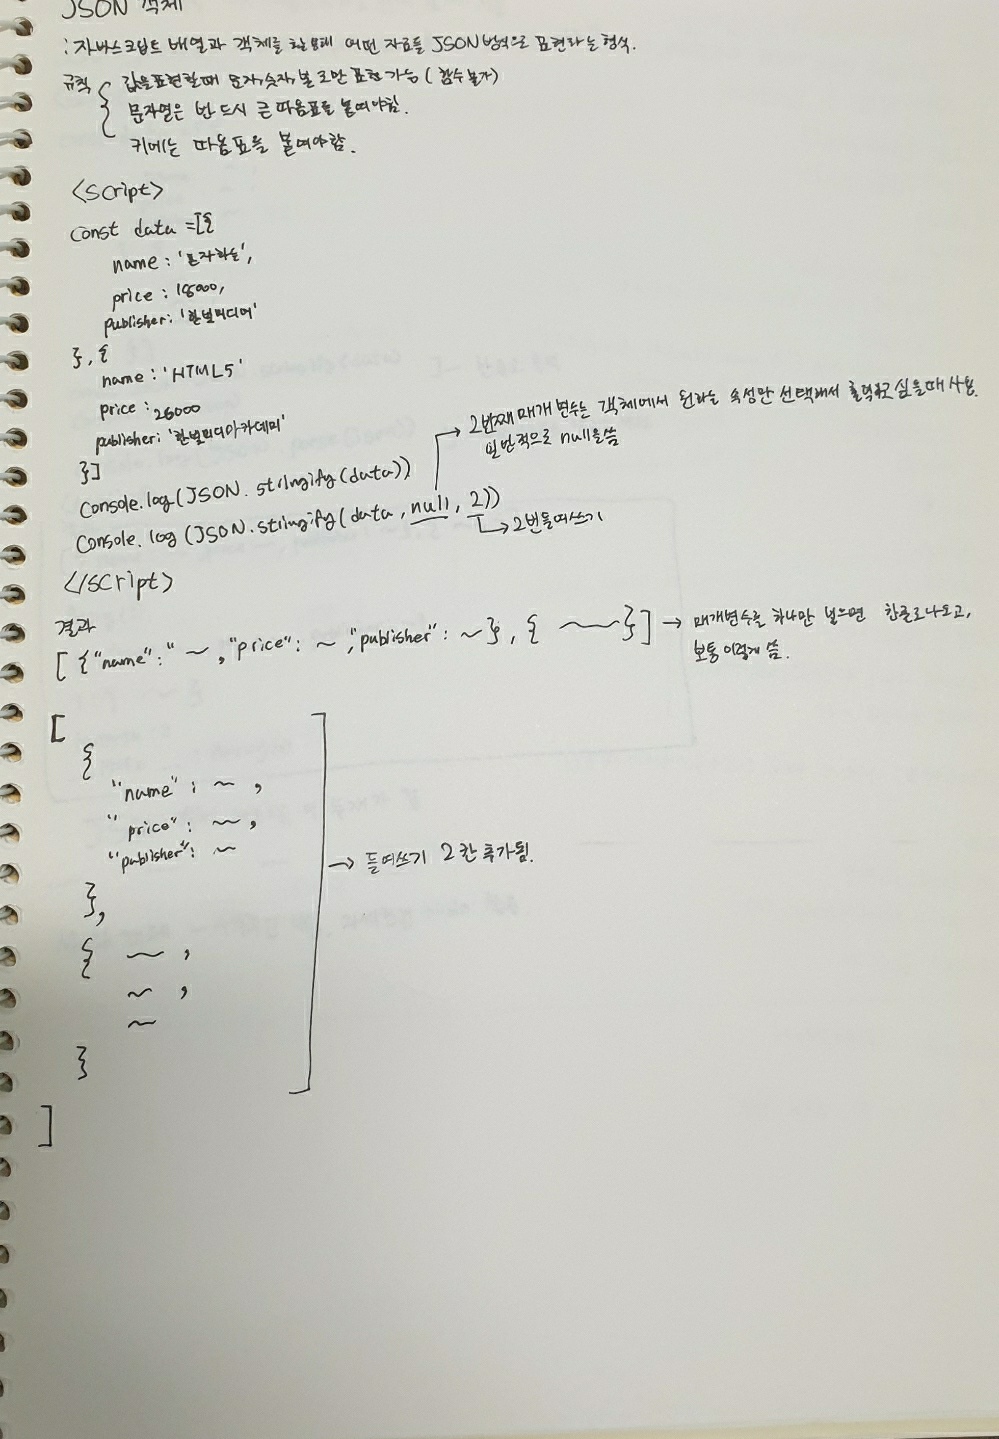 JSON 객체
: 자바스크립트 배열과 객체를 활용해 어떤 자료를 JSON방식으로 표현하는 형식.
규칙 { 값을 표현할 때 문자, 숫자, 불로만 표현 가능 (함수 불가)
문자열은 반드시 큰 따옴표를 붙여야함.
키에는 따옴표를 붙여야함.
<script>
const data =[{
name : '혼자하는',
price : 18000,
publisher: '한빛미디어'
}, {
name : 'HTML5'
price : 26000
publisher: '한빛미디어아카데미'
}]
→ 2번째 매개 변수는 객체에서 원하는 속성만 선택해서 출력하고 싶을때 사용.
일반적으로 null을 씀
Console.log(JSON. stringify(data))
Console. log (JSON.stringify( data , null , 2))
→ 2번들여쓰기
</script>
결과
[ {"name":" ~ , "price": ~ , "publisher": ~ }, { ~~ } ] → 매개변수를 하나만 넣으면 한줄로나오고,
보통 이렇게 씀.
[
{
"name" : ~ ,
"price" : ~ ,
"publisher": ~
→ 들여쓰기 2칸 추가됨.
},
{ ~ ,
~ ,
~
}
]